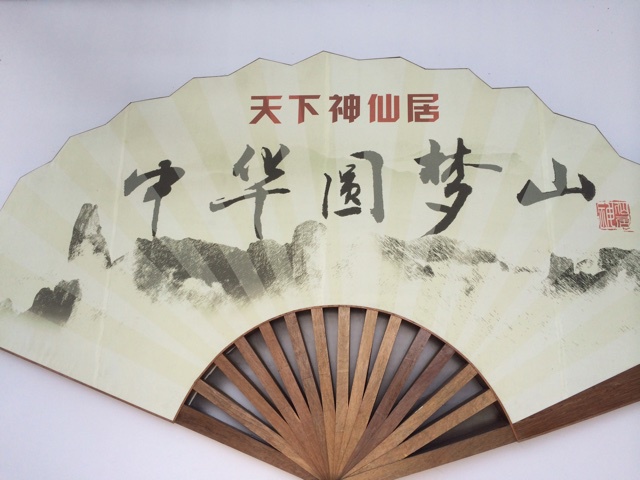 天下神仙居
中华圆梦山